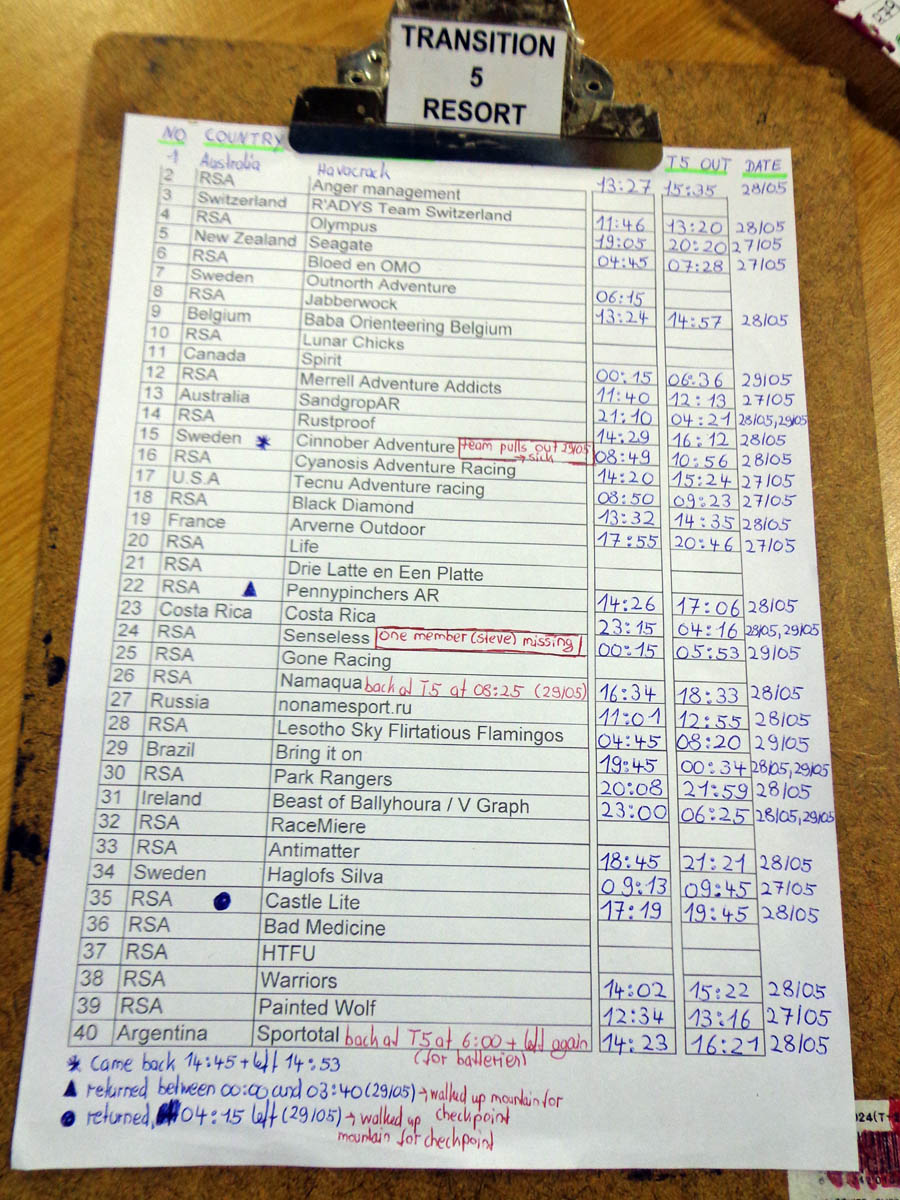 TRANSITION
5
RESORT
NO COUNTRY T5 OUT DATE
1 Australia Havocrack 13:27 15:35 28/05
2 RSA Anger management
3 Switzerland R'ADYS Team Switzerland 11:46 13:20 28/05
4 RSA Olympus 19:05 20:20 27/05
5 New Zealand Seagate 04:45 07:28 27/05
6 RSA Bloed en OMO
7 Sweden Outnorth Adventure 06:15
8 RSA Jabberwock 13:24 14:57 28/05
9 Belgium Baba Orienteering Belgium
10 RSA Lunar Chicks
11 Canada Spirit 00:15 06:36 29/05
12 RSA Merrell Adventure Addicts 11:40 12:13 27/05
13 Australia SandgropAR 21:10 04:21 28/05, 29/05
14 RSA Rustproof 14:29 16:12 28/05
15 Sweden * Cinnober Adventure team pulls out 29/05 → sick 08:49 10:56 28/05
16 RSA Cyanosis Adventure Racing 14:20 15:24 27/05
17 U.S.A Tecnu Adventure racing 08:50 09:23 27/05
18 RSA Black Diamond 13:32 14:35 28/05
19 France Arverne Outdoor 17:55 20:46 27/05
20 RSA Life
21 RSA Drie Latte en Een Platte
22 RSA ▲ Pennypinchers AR 14:26 17:06 28/05
23 Costa Rica Costa Rica 23:15 04:16 28/05, 29/05
24 RSA Senseless one member (steve) missing! 00:15 05:53 29/05
25 RSA Gone Racing
26 RSA Namaqua back at T5 at 08:25 (29/05) 16:34 18:33 28/05
27 Russia nonamesport.ru 11:01 12:55 28/05
28 RSA Lesotho Sky Flirtatious Flamingos 04:45 08:20 29/05
29 Brazil Bring it on 19:45 00:34 28/05, 29/05
30 RSA Park Rangers 20:08 21:59 28/05
31 Ireland Beast of Ballyhoura / V Graph 23:00 06:25 28/05, 29/05
32 RSA RaceMiere
33 RSA Antimatter 18:45 21:21 28/05
34 Sweden Haglofs Silva 09:13 09:45 27/05
35 RSA ● Castle Lite 17:19 19:45 28/05
36 RSA Bad Medicine
37 RSA HTFU
38 RSA Warriors 14:02 15:22 28/05
39 RSA Painted Wolf 12:34 13:16 27/05
40 Argentina Sportotal back at T5 at 6:00 + left again 14:23 16:21 28/05
(for batterien)
* Came back 14:45 + left 14:53
▲ returned between 00:00 and 03:40 (29/05) → walked up mountain for
checkpoint
● returned, 04:15 left (29/05) → walked up
mountain for checkpoint